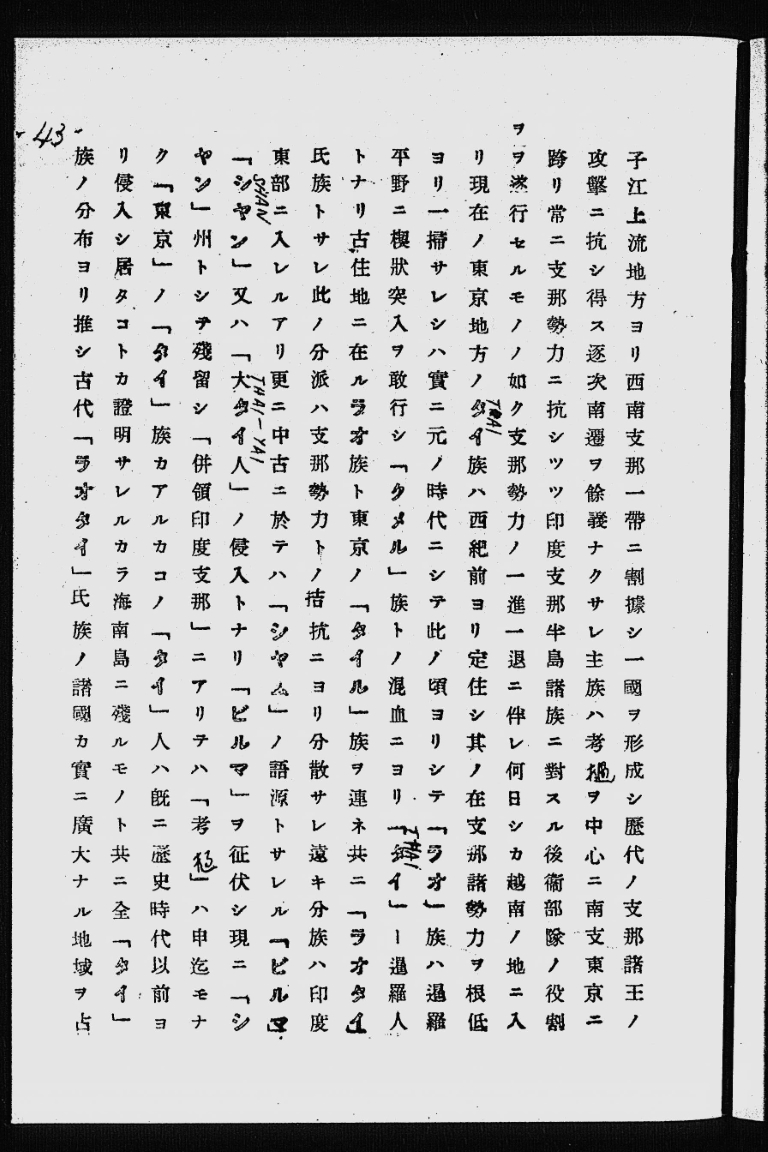 子江上流地方ヨリ西南支那一帶ニ割據シ一國ヲ形成シ歷代ノ支那諸王ノ
攻擊ニ抗シ得ス逐次南遷ヲ餘義ナクサレ主族ハ考 ヲ中心ニ南支東京ニ
跨リ常ニ支那勢力ニ抗シツツ印度支那半島諸族ニ對スル後衞部隊ノ役割
ヲヲ遂行セルモノノ如ク支那勢力ノ一進一退ニ伴レ何日シカ越南ノ地ニ入
リ現在ノ東京地方ノタイ族ハ西紀前ヨリ定住シ其ノ在支那諸勢力ヲ根低
THAI
ヨリ一掃サレシハ實ニ元ノ時代ニシテ此ノ頃ヨリシテ「ラオ」族ハ暹羅
平野ニ楔狀突入ヲ敢行シ「クメル」族トノ混血ニヨリ「タイ」ー暹羅人
THAI
トナリ古住地ニ在ルラオ族ト東京ノ「タイル」族ヲ連ネ共ニ「ラオタイ」
氏族トサレ此ノ分派ハ支那勢力トノ拮抗ニヨリ分散サレ遠キ分族ハ印度
東部ニ入レルアリ更ニ中古ニ於テハ「シヤム」ノ語源トサレル「ビルマ」
「シヤン」又ハ「大タイ人」ノ侵入トナリ「ビルマ」ヲ征伏シ現ニ「シ
SHAN
THAI-YAI
ヤン」州トシテ殘留シ「併領印度支那」ニアリテハ「考 」ハ申迄モナ
ク「東京」ノ「タイ」族カアルカコノ「タイ」人ハ旣ニ歷史時代以前ヨ
リ侵入シ居タコトカ證明サレルカラ海南島ニ殘ルモノト共ニ全「タイ」
族ノ分布ヨリ推シ古代「ラオタイ」氏族ノ諸國カ實ニ廣大ナル地域ヲ占
-43-